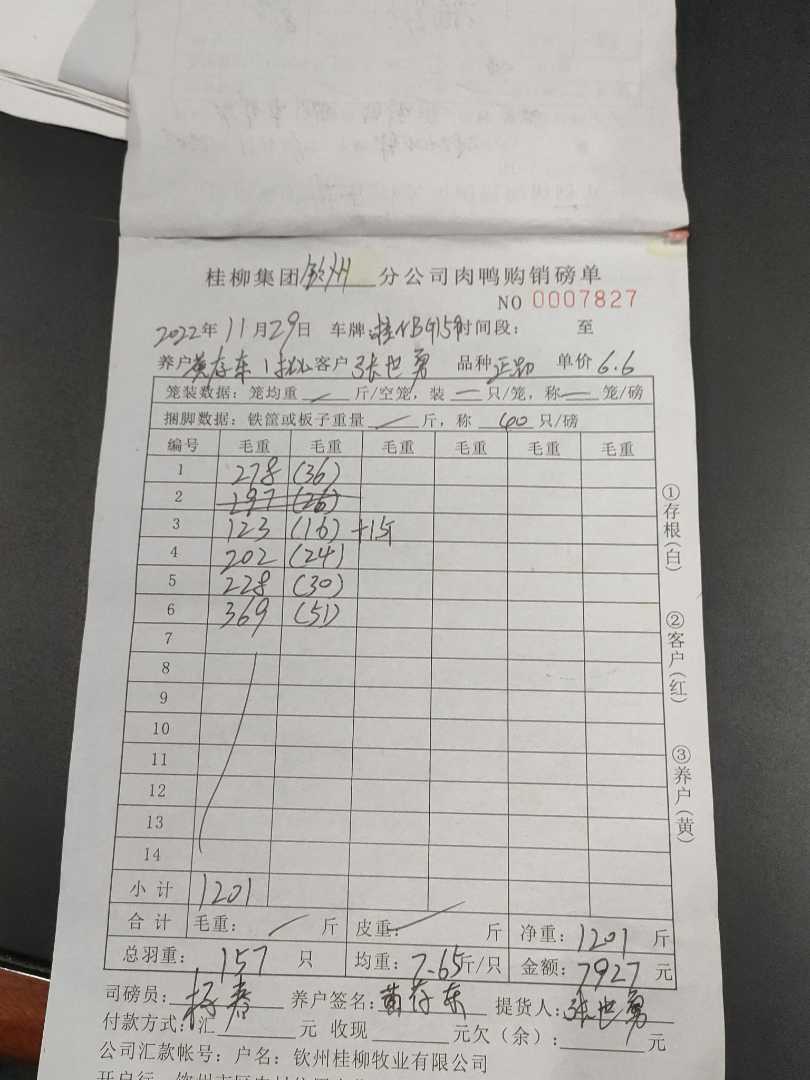 桂柳集团钦州分公司肉鸭购销磅单
NO 0007827
2022年11月29日 车牌: 时间段: 至
养户黄存东 1批 客户张世勇 品种正品 单价6.6
笼装数据: 笼均重 / 斤/空笼, 装 一 只/笼, 称 一 笼/磅
捆脚数据: 铁筐或板子重量 / 斤, 称 40 只/磅
编号 毛重 毛重 毛重 毛重 毛重 毛重
1 278 (36)
2 197 (26)
3 123 (16) +1斤
4 202 (24)
5 228 (30)
6 369 (51)
7
8
9
10
11
12
13
14
小计 1201
合计 毛重: / 斤 皮重: / 斤 净重: 1201 斤
总羽重: 157 只 均重: 7.65斤/只 金额: 7927 元
司磅员: 杨春 养户签名: 黄存东 提货人: 张世勇
付款方式: 汇 元 收现 元欠(余): 元
公司汇款帐号: 户名: 钦州桂柳牧业有限公司
①存根(白)
②客户(红)
③养户(黄)